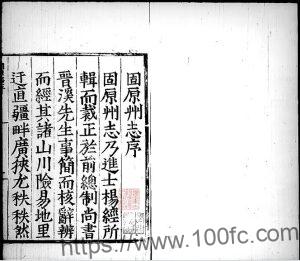 固原州志序
固原州志乃進士楊經所
輯而裁正於前總制尚書
晉溪先生事簡而核辭辨
而經其諸山川險易地里
迂直疆畔廣狹尤秩秩然
https://www.100fc.com